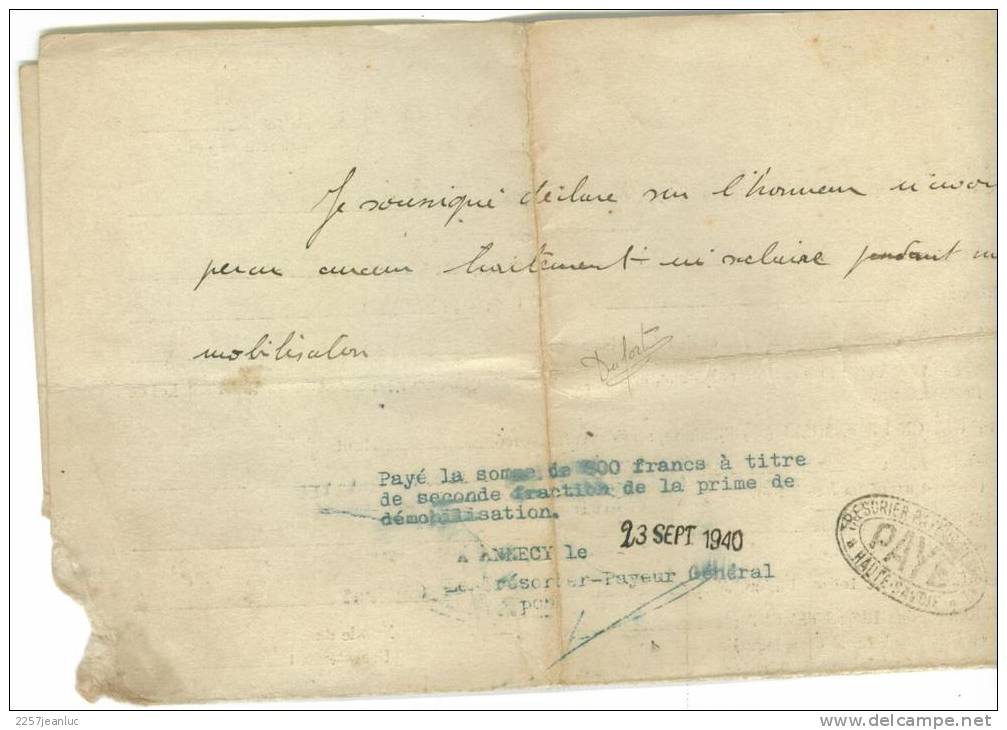 Je soussigné déclare sur l'honneur n'avoir
perçu aucun traitement ni salaire pendant
mobilisation
Dufort
Payé la somme de 800 francs à titre
de seconde fraction de la prime de
démobilisation.
A ANNECY le 23 SEPT 1940
Le Trésorier-Payeur Général
TRESORIER PAYEUR
PAYÉ
HAUTE-SAVOIE
2257jeanluc
www.delcampe.net